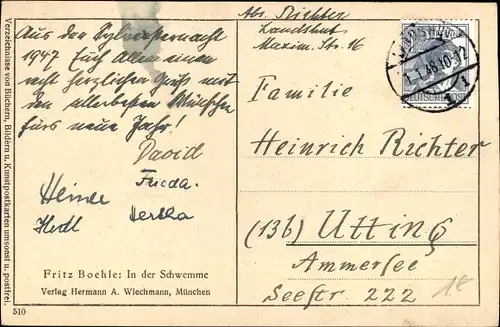 Verzeichnisse von Büchern, Bildern u. Kunstpostkarten umsonst u. postfrei.
Aus der Sylvesternacht
1947 Euch Allen einen
recht herzlichen Gruß mit
den allerbesten Wünschen
fürs neue Jahr!
David
Frieda.
Heiner
Hedl
Hertha
Fritz Boehle: In der Schwemme
Verlag Hermann A. Wiechmann, München
510
Abs. Richter
Landshut
Maxim. Str. 16
Familie
Heinrich Richter
(13b) Utting
Ammersee
Seestr. 222
1.1.48.10-12
DEUTSCHE POST
12
1€